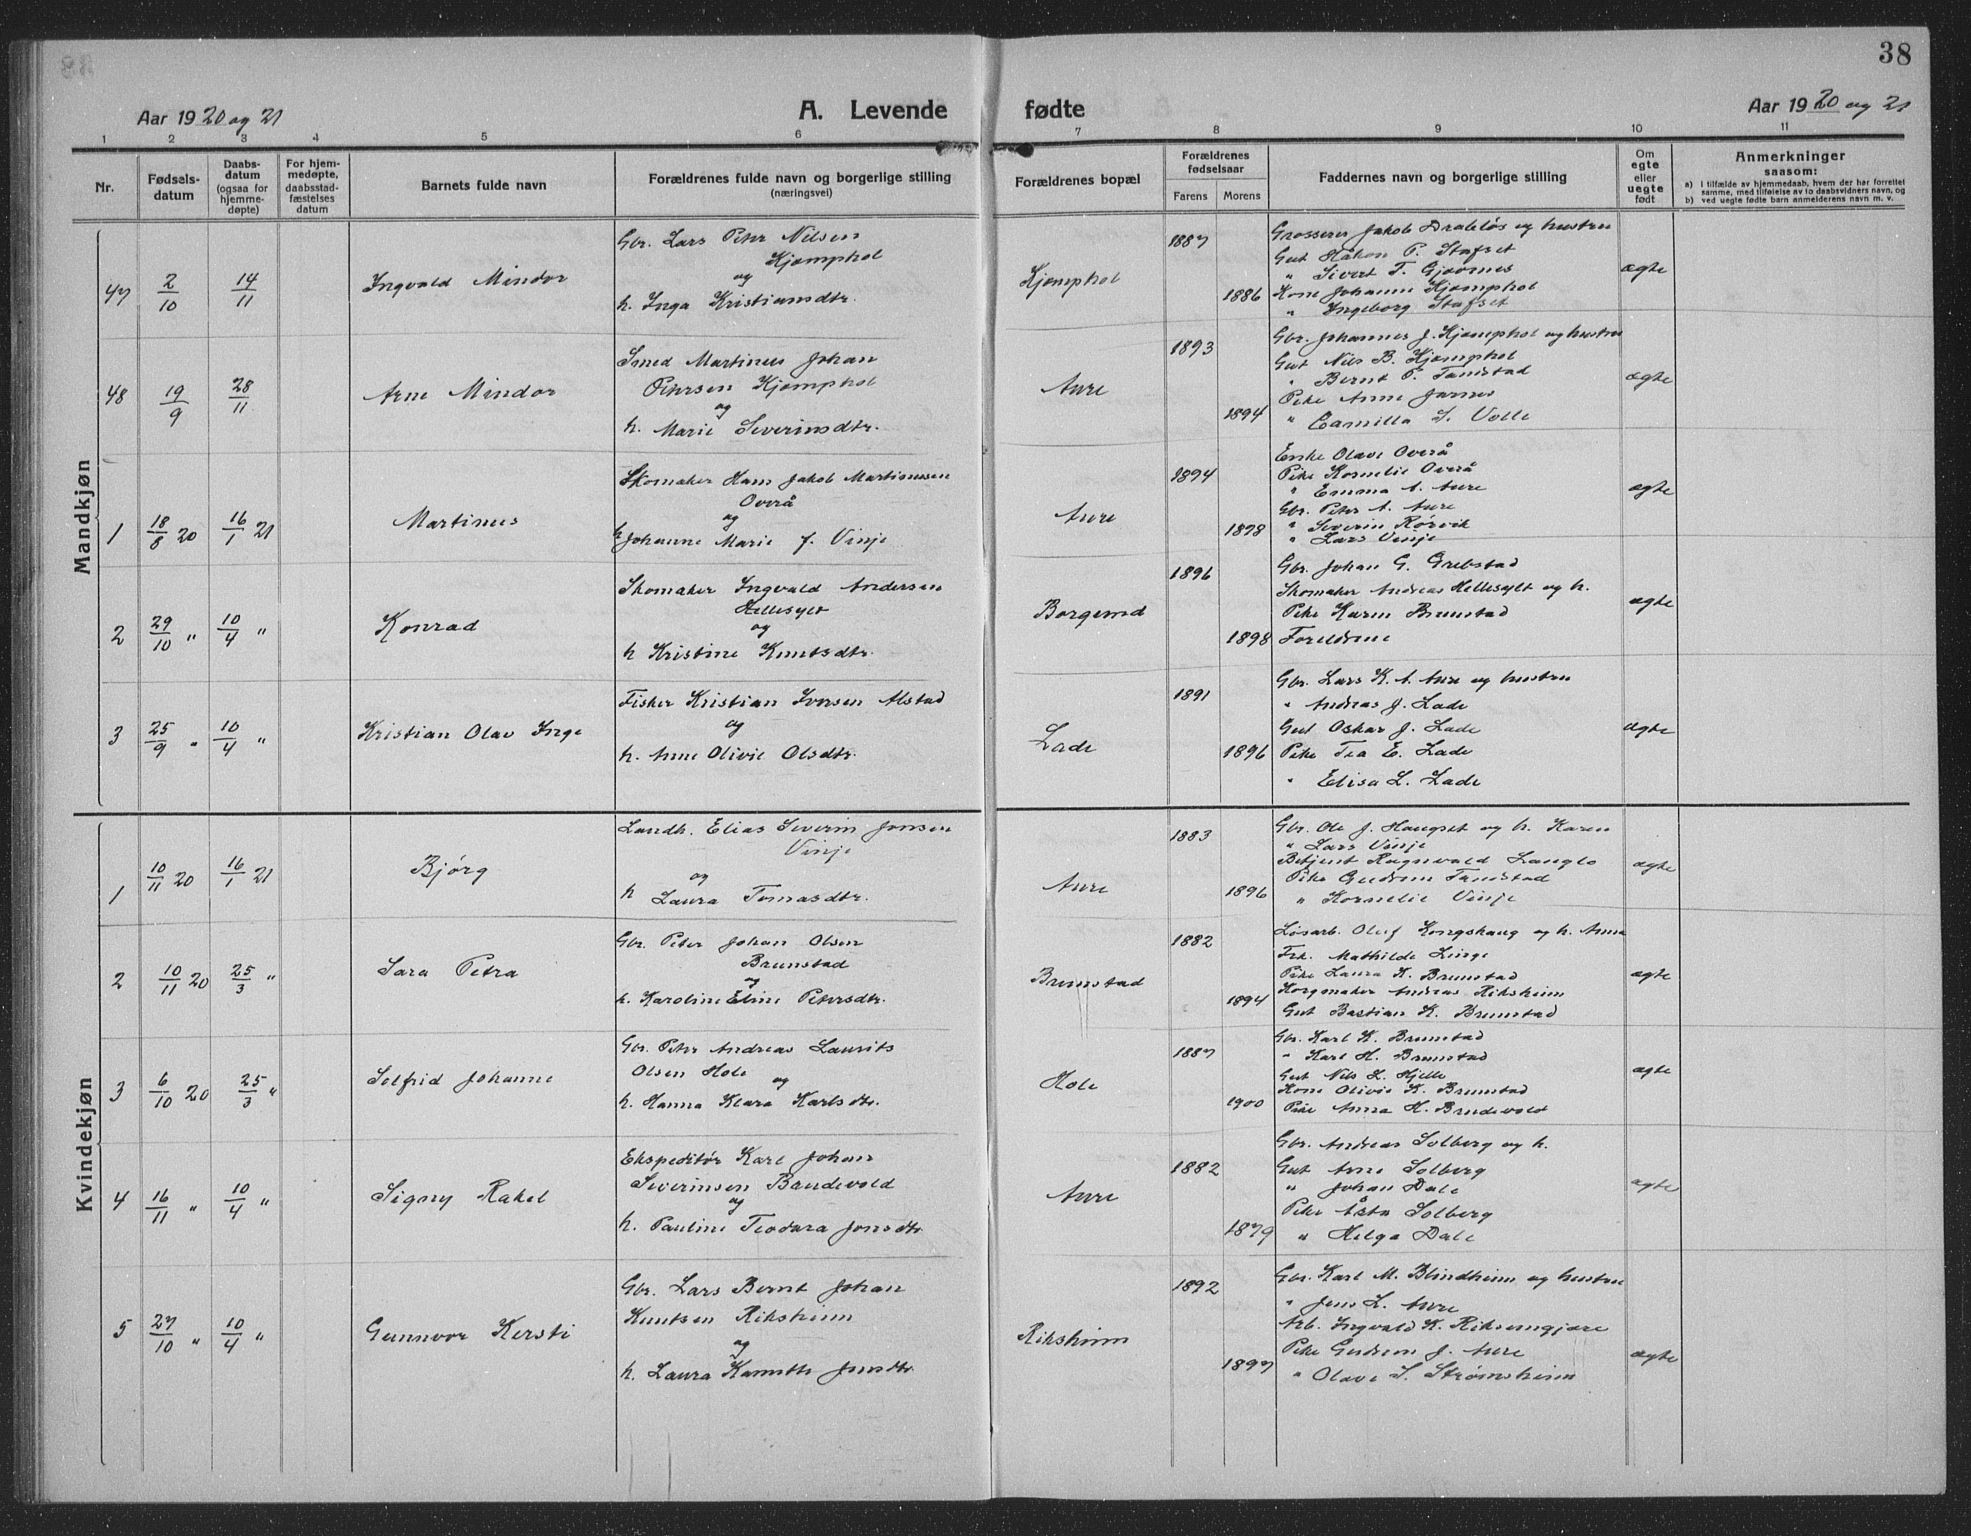 38
Aar 1920 og 21
A. Levende fødte
Aar 1920 og 21
1 2 3 4 5 6 7 8 9 10 11
Nr.
Fødsels-
datum
Daabs-
datum
(ogsaa for
hjemme-
døpte)
For hjem-
medøpte,
daabsstad-
fæstelses
datum
Barnets fulde navn
Forældrenes fulde navn og borgerlige stilling
(næringsvei)
Forældrenes bopæl
Forældrenes
fødselsaar
Farens Morens
Faddernes navn og borgerlige stilling
Om
egte
eller
uegte
født
Anmerkninger
saasom:
a) I tilfælde av hjemmedaab, hvem der har forrettet
samme, med tilføielse av to daabsvidners navn, og
b) ved uegte fødte barn anmelderens navn m. v.
Mandkjøn
47 2/10 14/11 Ingvald Mindor
Gbr. Lars Petter Nilsen
Kjemphol
og
h. Inga Kristiansdtr.
Kjemphol
1887
1886
Grosserer Jakob Drabløs og hustru
Gut Håkon P. Stafset
" Sivert T. Gjævnes
Kone Johanne Kjemphol
" Ingeborg Stafset
ægte
48 19/9 28/11 Arne Mindor
Smed Martinus Johan
Petersen Kjemphol
og
h. Marie Severinsdtr.
Aure
1893
1894
Gbr. Johannes J. Kjemphol og hustru
Gut Nils B. Kjemphol
" Bernt P. Tandstad
Pike Anne Jarnes
" Camilla S. Volle
ægte
1 18/8 20 16/1 21 Martinus
Skomaker Hans Jakob Martinussen
Overå
og
h. Johanne Marie f. Vinje
Aure
1894
1898
Enke Olave Overå
Pike Kornelie Overå
" Emma A. Aure
Gbr. Peter A. Aure
" Severin Rørvik
" Lars Vinje
ægte
2 29/10 " 10/4 " Konrad
Skomaker Ingvald Andersen
Hellesylt
og
h Kristine Knutsdtr.
Borgemd
1896
1898
Gbr. Johan G. Grebstad
Skomaker Andreas Hellesylt og h.
Pike Karen Brunstad
Foreldrene
ægte
3 25/9 " 10/4 " Kristian Olav Inge
Fisker Kristian Iversen Alstad
og
h. Anne Olivie Olsdtr.
Lade
1891
1896
Gbr. Lars K. A. Aure og hustru
" Andreas J. Lade
Gut Oskar J. Lade
Pike Tea E. Lade
" Elisa L. Lade
ægte
Kvindekjøn
1 10/11 20 16/1 21 Bjørg
Landh. Elias Severin Jonsen
Vinje
og
h Laura Tomasdtr.
Aure
1883
1896
Gbr. Ole J. Haugset og h. Karen
" Lars Vinje
Betjent Ragnvald Langlo
Pike Gudrun Tandstad
" Kornelie Vinje
ægte
2 10/11 20 25/3 " Sara Petra
Gbr. Peter Johan Olsen
Brunstad
og
h. Karoline Eline Petersdtr.
Brunstad
1882
1894
Løsarb. Oluf Kongshaug og h. Anna
Frk. Mathilde Linge
Pike Laura K. Brunstad
Korgmaker Andreas Riksheim
Gut Bastian K. Brunstad
ægte
3 6/10 20 25/3 " Solfrid Johanne
Gbr. Peter Andreas Laurits
Olsen Hole
og
h. Hanna Klara Karlsdtr.
Hole
1887
1900
Gbr. Karl K. Brunstad
" Karl H. Brunstad
Gut Nils K. Hjelle
Kone Olivie K. Brunstad
Pike Anna H. Brudevold
ægte
4 16/11 " 10/4 " Signy Rakel
Ekspeditør Karl Johan
Severinsen Brudevold
og
h. Pauline Teodora Jonsdtr.
Aure
1882
1879
Gbr. Andreas Solberg og h.
Gut Arne Solberg
" Johan Dale
Pike Åsta Solberg
" Helga Dale
ægte
5 27/10 " 10/4 " Gunnvor Kersti
Gbr. Lars Bernt Johan
Knutsen Riksheim
og
h. Laura Jensdtr.
Riksheim
1892
1897
Gbr. Karl M. Blindheim og hustru
" Jens L. Aure
Arb. Ingvald K. Riksemgjære
Pike Gudrun J. Aure
" Olave S. Strømsheim
ægte